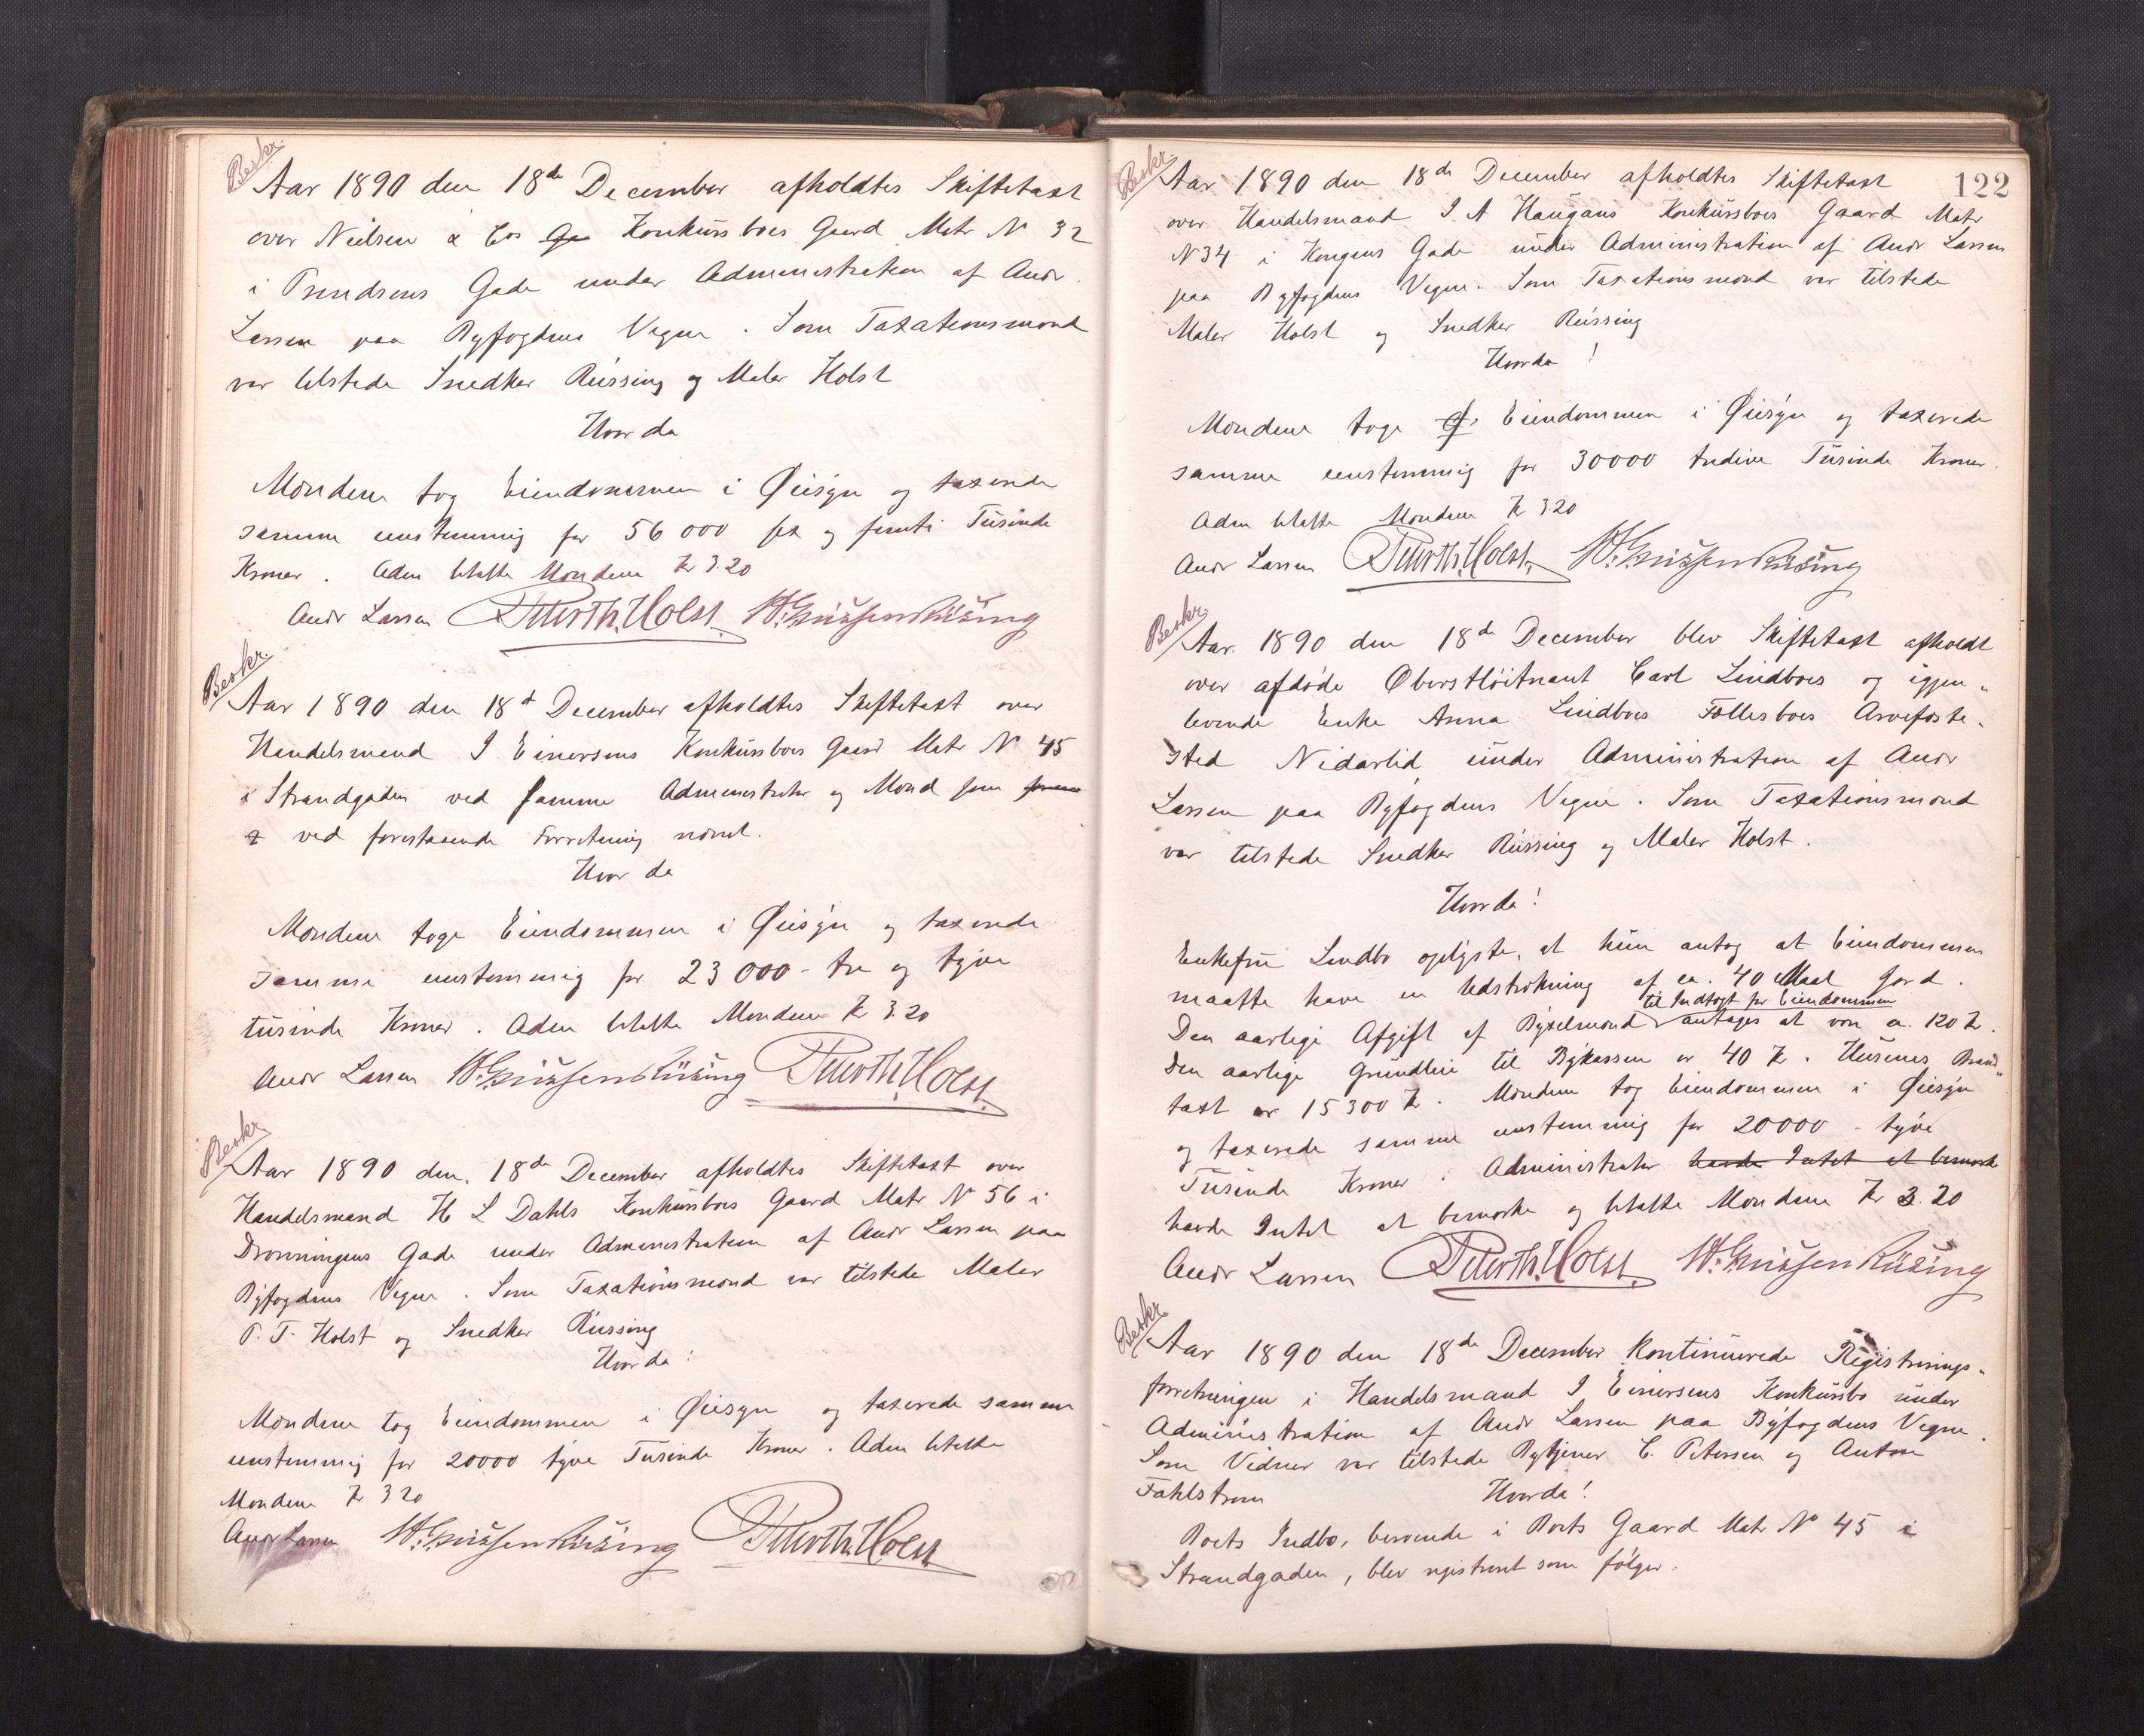 Beskr.
Aar 1890 den 18de December afholdtes Skiftetaxt
over Nielsen & Cos Ga Konkursboes Gaard Matr N 32
i Prindsens Gade under Administration af Andr
Larsen paa Byfogdens Vegne. Som Taxationsmænd
var tilstede Snedker Rüssing og Maler Holst
Hvorda
Mændene tog Eiendommen i Øiesyn og taxerede
samme enstemmig for 56000 sex og femti Tusinde
Kroner. Adm betalte Mændene Kr 3.20
Andr Larsen Peter Th. Holst. W. Grüssen Rüsing
Beskr.
Aar 1890 den 18de December afholdtes Skiftetaxt over
Handelsmand I Einersens Konkursboes Gaard Matr N 45
i Strandgaden ved samme Administrator og Mænd som
ved forestaaende Forretning nævnt.
Hvor da
Mændene toge Eiendommen i Øiesyn og taxerede
samme enstemmig for 23000 - tre og tyve
tusinde Kroner. Adm betalte Mændene Kr 3.20
Andr Larsen W. Grüssen Rüsing Peter Th. Holst.
Beskr.
Aar 1890 den 18de December afholdtes Skiftetaxt over
Handelsmand H L Dahls Konkursboes Gaard Matr N 56 i
Dronningens Gade under Administration af Andr Larsen paa
Byfogdens Vegne. Som Taxationsmænd var tilstede Maler
P. T. Holst og Snedker Rüssing
Hvor da!
Mændene tog Eiendommen i Øiesyn og taxerede samme
enstemmig for 20000 tyve Tusinde Kroner. Adm betalte
Mændene Kr 3 20
Andr Larsen W. Grüssen Rüsing Peter Th. Holst
122
Beskr.
Aar 1890 den 18de December afholdtes Skiftetaxt
over Handelsmand I A Haugans Konkursboes Gaard Matr
N 34 i Kongens Gade under Administration af Andr Larsen
paa Byfogdens Vegne. Som Taxationsmænd var tilstede
Maler Holst og Snedker Rüssing
Hvorda!
Mændene toge Eiendommen i Øiesyn og taxerede
samme enstemmig for 30000 tredive Tusinde Kroner.
Adm betalte Mændene Kr 320
Andr Larsen Peter Th. Holst. W. Grüssen Rüsing
Beskr.
Aar 1890 den 18de December blev Skiftetaxt afholdt
over afdøde Oberstløitnant Carl Lindboes og igjen-
levende Enke Anna Lindboes Fællesboes Arvefæste-
sted Nidarlid under Administration af Andr
Larsen paa Byfogdens Vegne. Som Taxationsmænd
var tilstede Snedker Rüssing og Maler Holst.
Hvorda!
Enkefru Lindbo oplyste, at hun antog at Eiendommen
maatte have en Udstrækning af ca. 40 Maal Jord.
til Indtægt for Eiendommen
Den aarlige Afgift af Bygselmænd antages at være ca. 120 Kr.
Den aarlige Grundleie til Bykassen er 40 Kr. Husenes Brand-
taxt er 15300 Kr. Mændene tog Eiendommen i Øiesyn
og taxerede samme enstemmig for 20000 - tyve
Tusinde Kroner. Administrator havde Intet at bemærke
havde Intet at bemærke og betalte Mændene Kr 3.20
Andr Larsen Peter Th. Holst. W. Grüssen Rüsing
Beskr.
Aar 1890 den 18de December kontinuerede Registrerings-
forretningen i Handelsmand I Einersens Konkursbo under
Administration af Andr Larsen paa Byfogdens Vegne.
Som Vidner var tilstede Bytjener C. Petersen og Anton
Fahlstrøm Hvorda!
Boets Indbo, beroende i Boets Gaard Matr No 45 i
Strandgaden, blev registreret som følger.